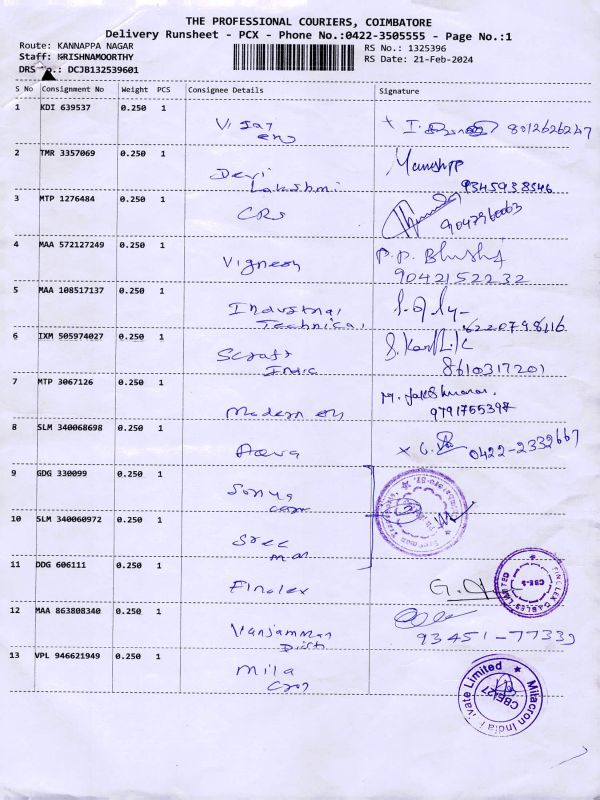 THE PROFESSIONAL COURIERS, COIMBATORE
Delivery Runsheet - PCX - Phone No.:0422-3505555 - Page No.:1
Route: KANNAPPA NAGAR RS No.: 1325396
Staff: KRISHNAMOORTHY RS Date: 21-Feb-2024
DRS No.: DCJB132539601
S No Consignment No Weight PCS Consignee Details Signature
1 KDI 639537 0.250 1
Vijay 8012626247
2 TMR 3357069 0.250 1
Devi
Lakshmi 9345938546
3 MTP 1276484 0.250 1
9047960063
4 MAA 572127249 0.250 1
Vignesh P.P. Bhusha
9042152232
5 MAA 108517137 0.250 1
Industrial
Technical 6220798116
6 IXM 505974027 0.250 1
India 8610317201
7 MTP 3067126 0.250 1
Modern 9791755397
8 SLM 340068698 0.250 1
0422-2332667
9 GDG 330099 0.250 1
Sonya
10 SLM 340060972 0.250 1
Sree
11 DDG 606111 0.250 1
Finolex
FINOLEX CABLES LIMITED
CBE-5
12 MAA 863808340 0.250 1
93451-77339
13 VPL 946621949 0.250 1
Mila
Milacron India Private Limited
CBE127